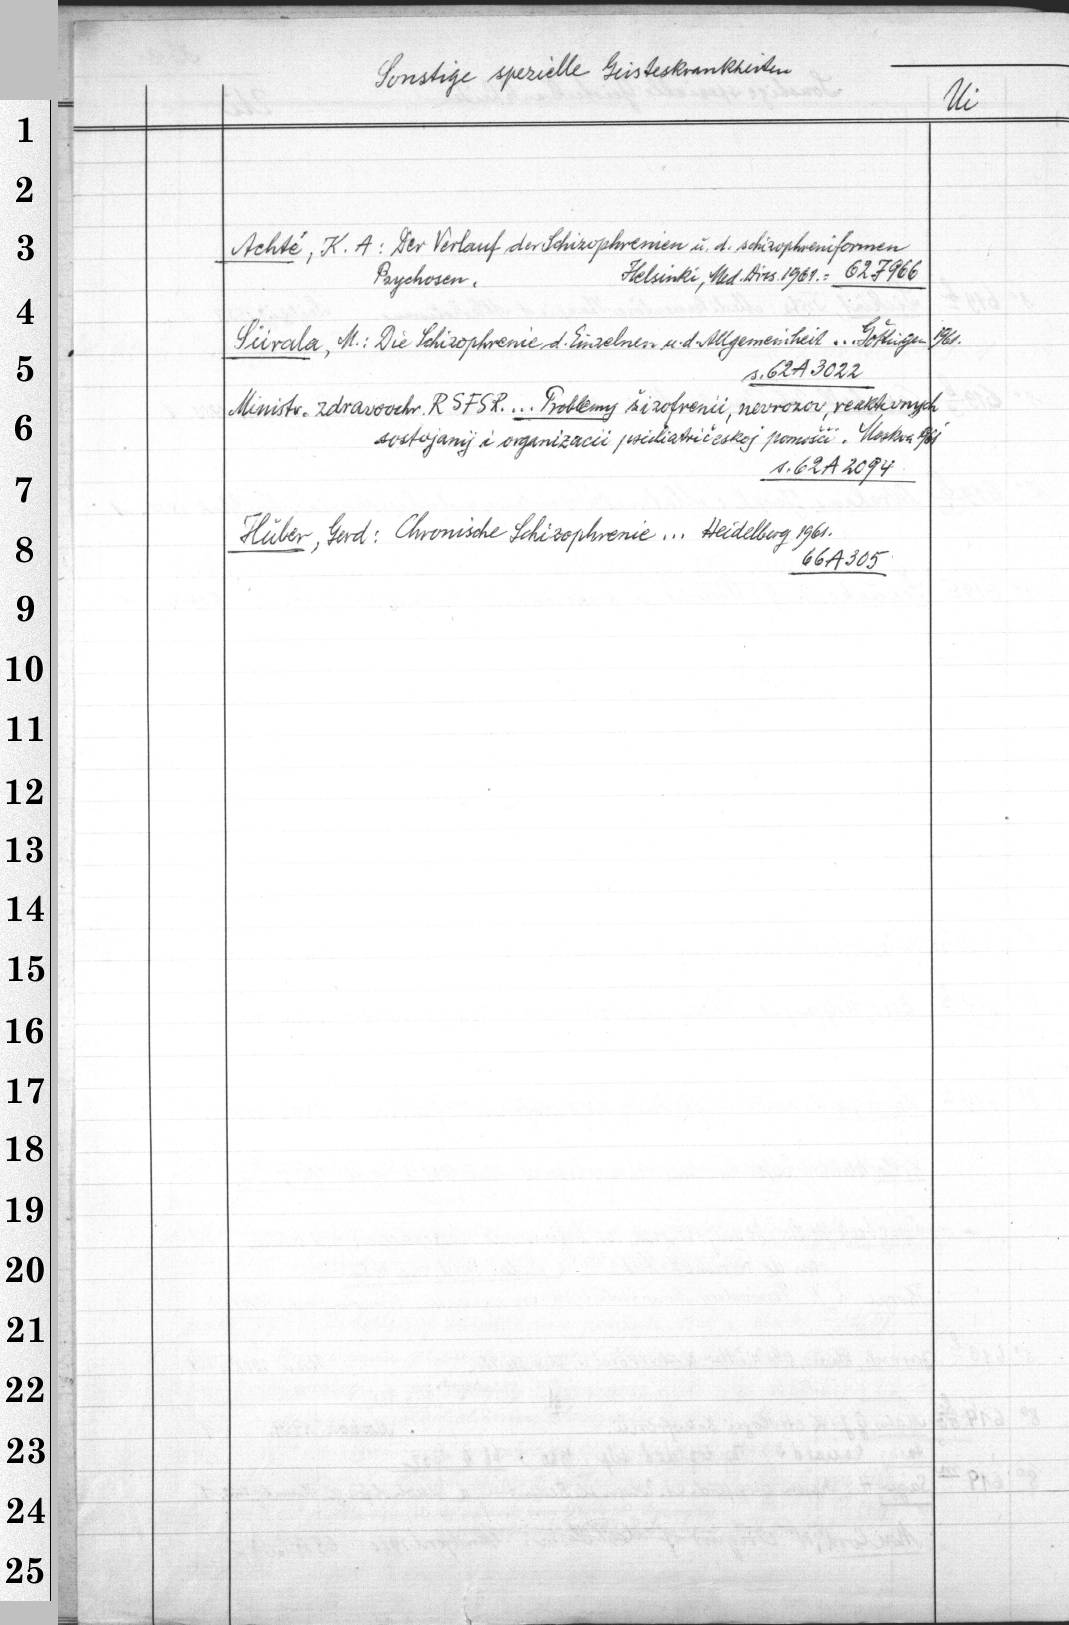 Sonstige spezielle Geisteskrankheiten
Ui
1
2
3
4
5
6
7
8
9
10
11
12
13
14
15
16
17
18
19
20
21
22
23
24
25
Achté, K. A: Der Verlauf der Schizophrenien u. d. schizophreniformen
Psychosen. Helsinki, Med. Diss. 1961. = 62 7966
Siirala, M.: Die Schizophrenie d. Einzelnen u. d. Allgemeinheit ... Göttingen 1961.
s. 62 A 3022
Ministr. zdravoochr. RSFSR. ... Problemy šizofrenii, nevrozov, reaktivnych
sostojanij i organizacii psichiatričeskoj pomošči. Moskva 1961
s. 62 A 2094
Huber, Gerd: Chronische Schizophrenie ... Heidelberg 1961.
66 A 305